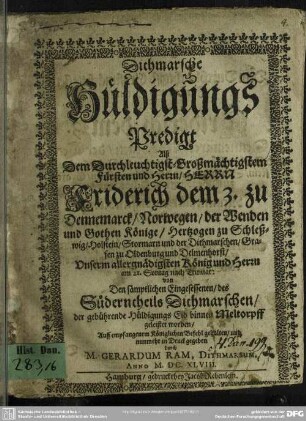 Dithmarsche
Hüldigungs
Predigt
Als
Dem Durchleuchtigst-Großmächtigstem
Fürsten und Herrn / HERRN
Friderich dem 3. zu
Dennemarck / Norwegen / der Wenden
und Gothen Könige / Hertzogen zu Schleß-
wig / Holstein / Stormarn und der Dithmarschen / Gra-
fen zu Oldenburg und Delmenhorst /
Unserm allergnädigsten König und Herrn
von
Den sämptlichen Eingesessenen / des
Südertheils Dithmarschen /
der gebührende Hüldigungs Eyd binnen Meltorpff
geleistet worden /
Auff empfangenen Königlichen Befehl gehalten / und
nunmehr in Druck gegeben
M. GERARDUM RAM, DITHMARSUM,
ANNO M. DC. XLVIII.
Hamburg / gedruckt bey
Hist. Dan.
283,16